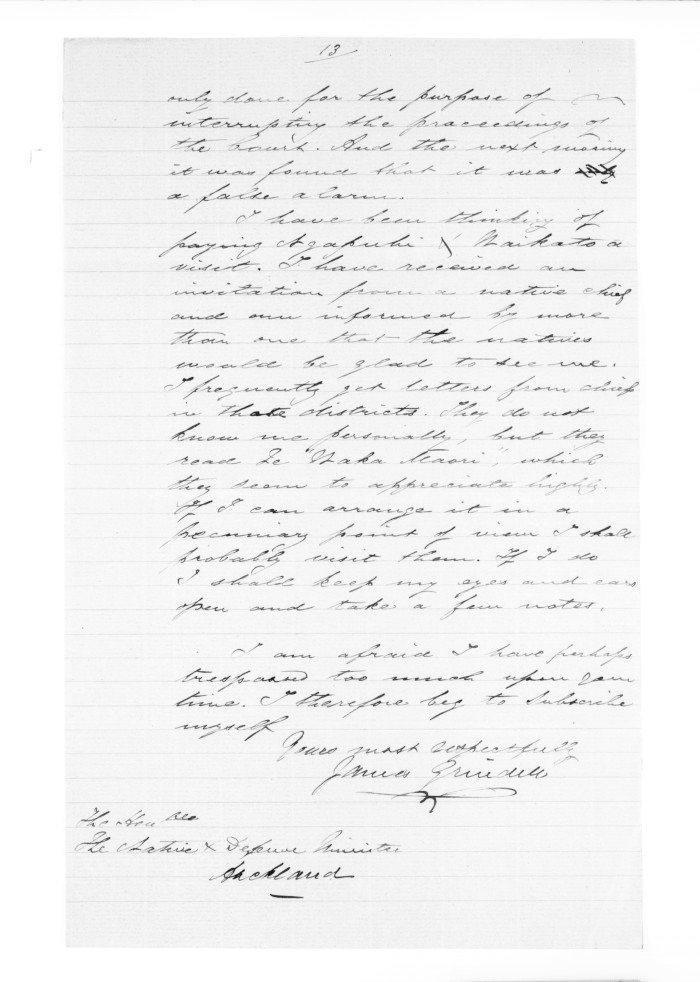 13
only done for the purpose of
interrupting the proceedings of
the Court. And the next morning
it was found that it was
a false alarm.
I have been thinking of
paying Ngapuhi & Waikato a
visit. I have received an
invitation from a native chief
and am informed by more
than one that the natives
would be glad to see me.
I frequently get letters from chiefs
in those districts. They do not
know me personally, but they
read Te "Waka Maori", which
they seem to appreciate highly.
If I can arrange it in a
pecuniary point of view I shall
probably visit them. If I do
I shall keep my eyes and ears
open and take a few notes.
I am afraid I have perhaps
trespassed too much upon your
time. I therefore beg to subscribe
myself
Yours most respectfully
James Grindell
The Honble
The Native & Defence Minister
Auckland